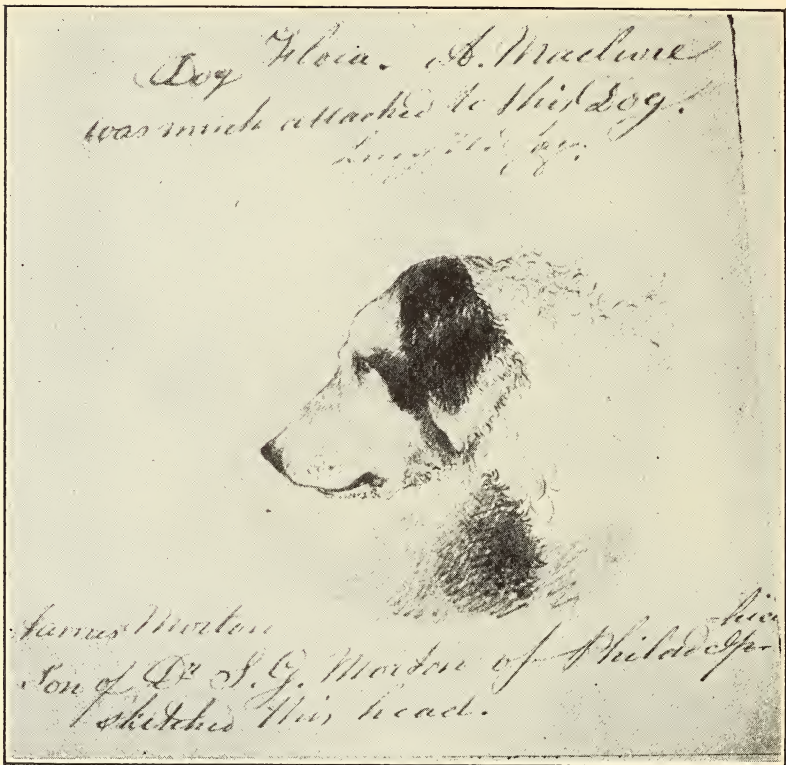 Dog Flora. A. Maclure
was much attached to this Dog.
James Morton
Son of Dr S. G. Morton of Philadelphia
sketched this head.